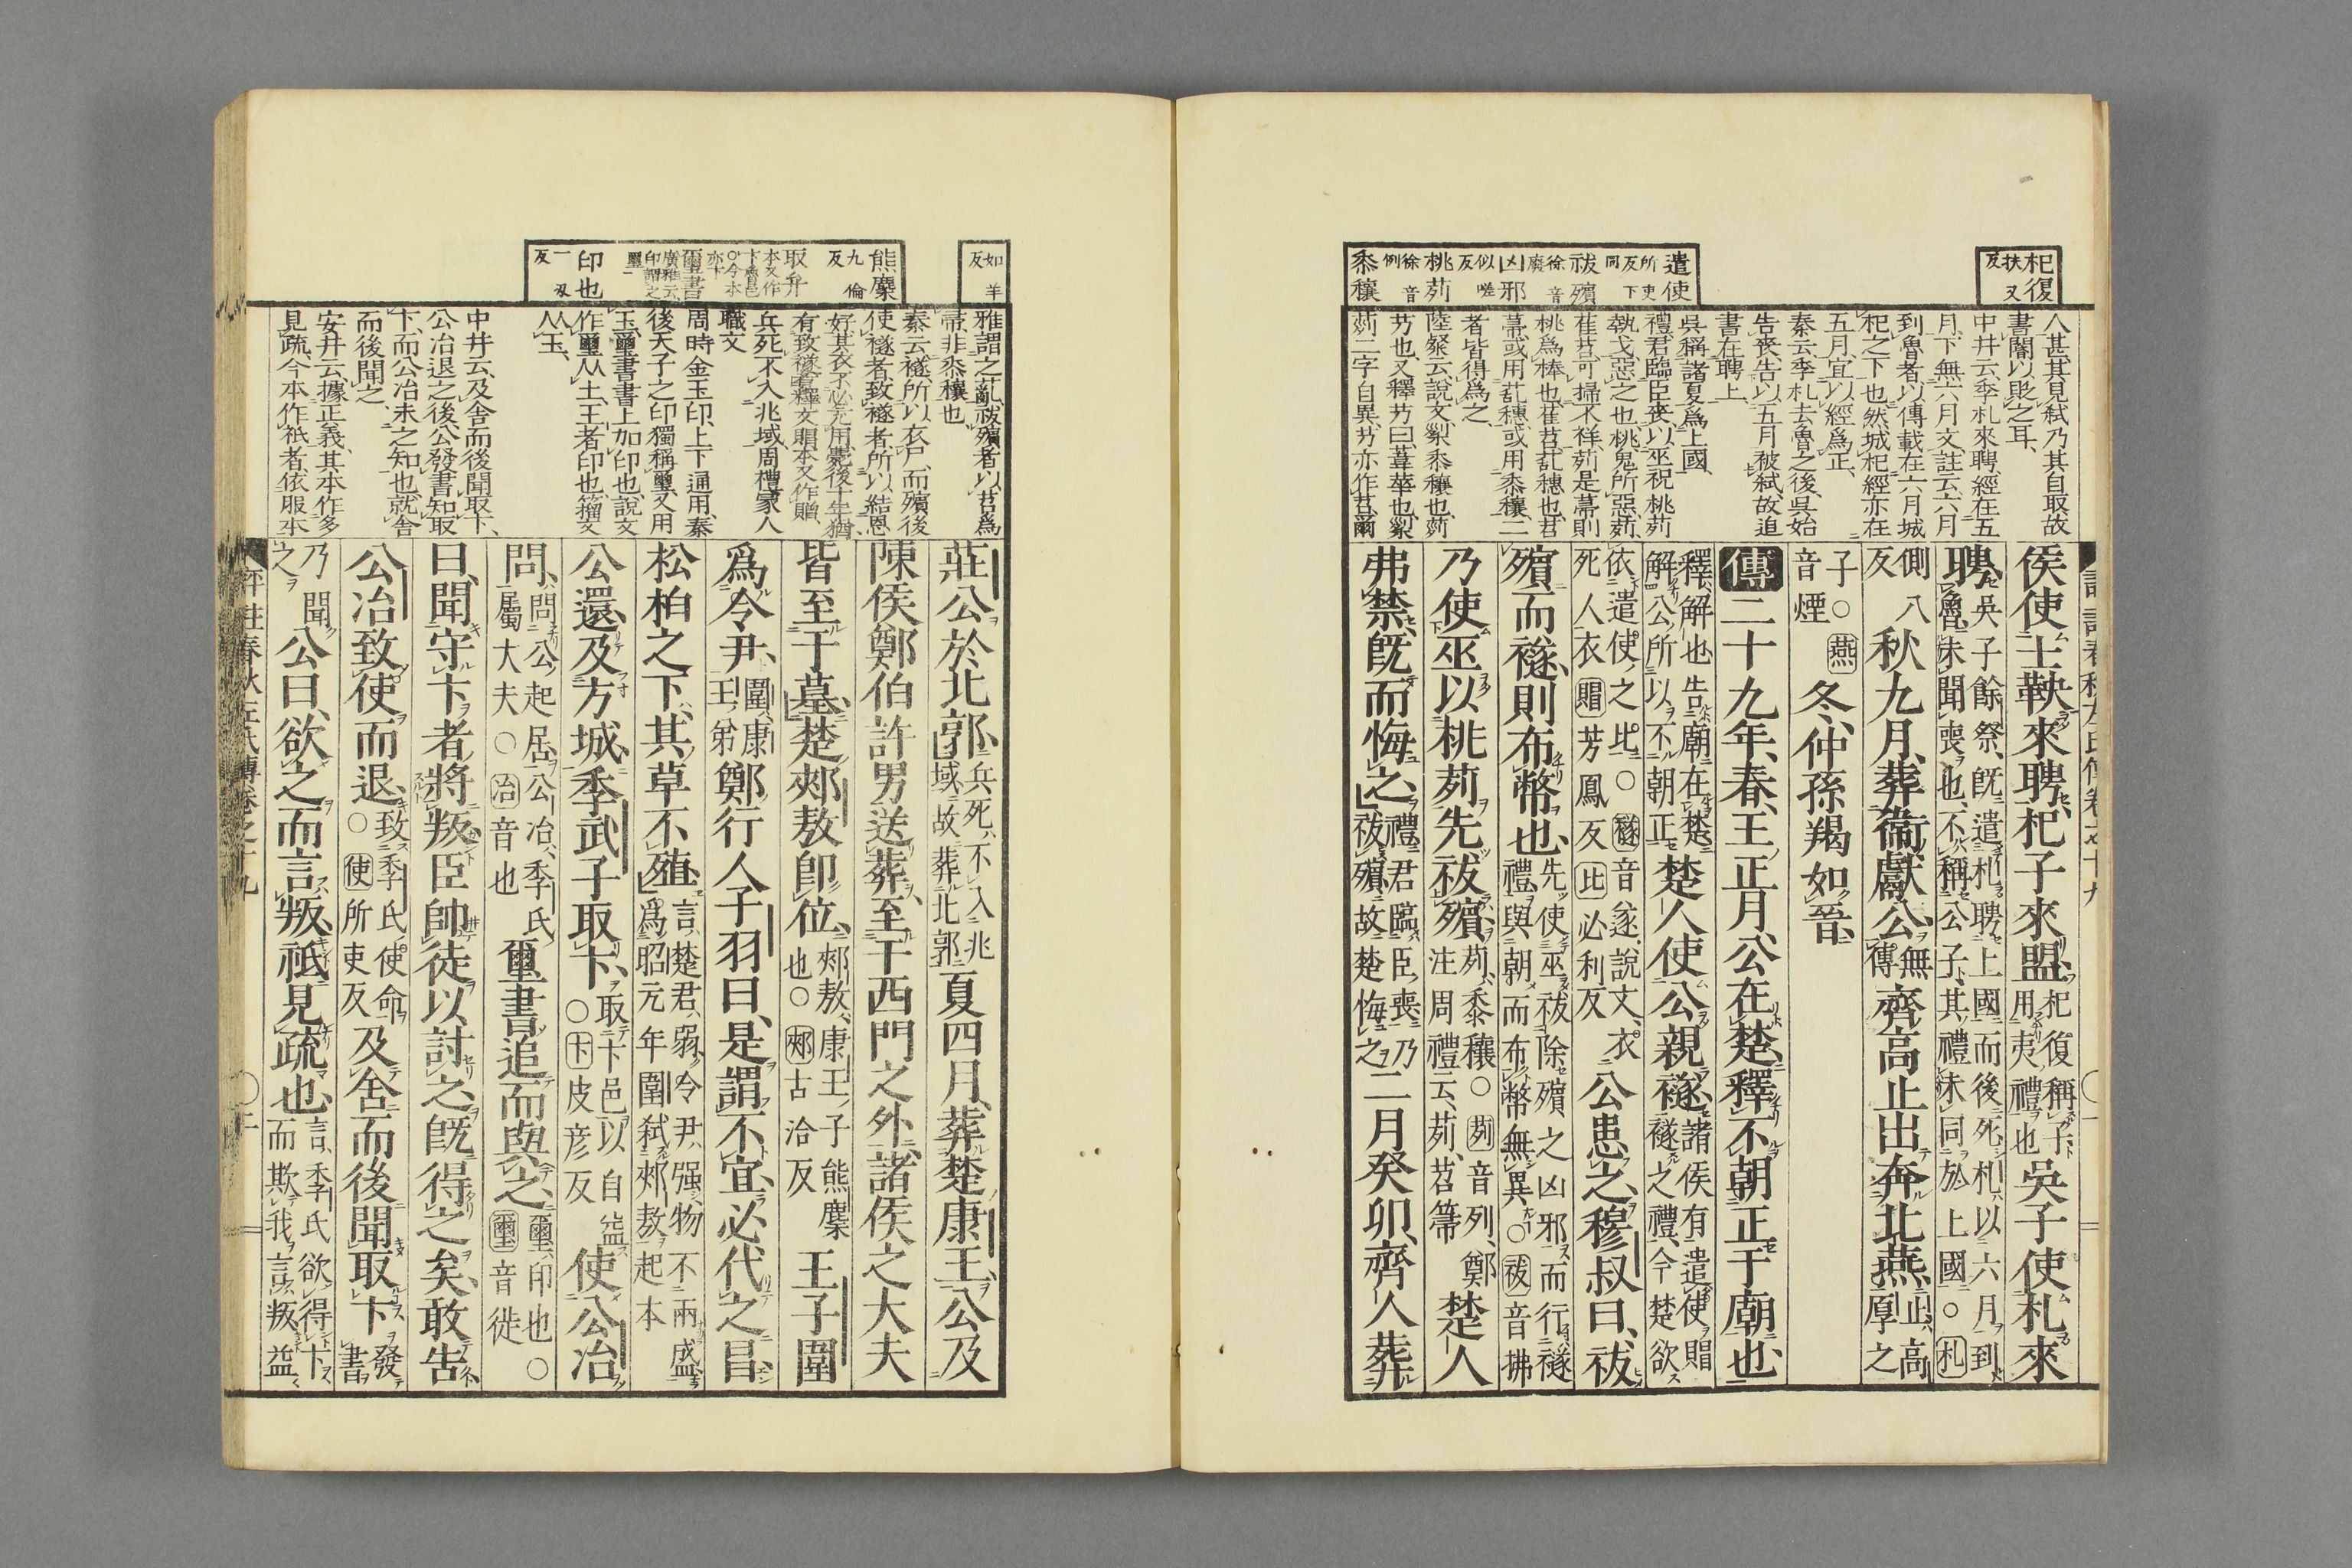 杞復
扶又反
遣使
所吏反下同
祓殯
徐音廢
凶邪
似嗟反
桃茢
徐音例
黍穰
人甚其見弒乃其自取故
書閽以敗之耳、
中井云季札來聘、經在五
月、下無六月文、註云六月
到魯者以傳載在六月城
杞之下也然城杞經亦在
五月、宜以經爲正、
秦云季札去魯之後、吳始
告喪、告以五月被弒、故追
書在聘上、
吳稱諸夏爲上國、
禮君臨臣喪以巫祝桃茢
執戈、惡之也桃鬼所惡、茢
萑苕、可掃不祥、茢是菷、則
桃爲棒也、萑苕、䒱穗也、苕
菷、或用䒱穗、或用黍穰、二
者皆得爲之
陸粲云說文䅀黍穰也、茢
艿也、又釋艿曰葦華也、䅀
茢二字自異、艿亦作苕、爾
侯使士鞅來聘、杞子來盟、杞復稱子用夷禮也吳子使札來
聘、吳子餘祭、旣遣札聘上國而後死札以六月到魯、未聞喪也、不稱公子、其禮未同於上國○札
側八反秋九月、葬衞獻公、無傳齊高止出奔北燕、止高厚之
子○燕音煙冬、仲孫羯如晉、
傳二十九年、春、王正月、公在楚、釋不朝正于廟也、
釋、解也、告廟在楚解公所以不朝正楚人使公親襚、諸侯有遣使賵襚之禮、今楚欲
依遣使之比○襚音遂、說文、衣死人衣賵芳鳳反比必利反公患之、穆叔曰、祓
殯而襚、則布幣也、先使巫祓除殯之凶邪而行襚禮、與朝而布幣無異○祓音拂
乃使巫以桃茢先祓殯、茢、黍穰○茢音列、鄭注周禮云、茢、苕菷楚人
弗禁、旣而悔之、禮、君臨臣喪乃祓殯、故楚悔之二月癸卯、齊人葬
如羊反
熊麇
九倫反
取弁
本又作卞魯邑○今本亦卞
璽書
廣雅云印謂之璽
印也
一刄反
雅謂之䒱、祓殯者、以苕爲
菷、非黍穰也、
秦云、襚、所以衣尸、而殯後
使襚者致襚者、所以結恩
好、其衣不必充用、薨後十年猶
有致襚者、釋文賵本又作賵、
兵死不入兆域、周禮冢人
職文
周時金玉印、上下通用、秦
後天子之印獨稱璽、又用
玉、璽書書上加印也、說文
作璽从土、王者印也、籀文
从玉、
中井云、及舍而後聞取卞、
公冶退之後、公發書知取
卞、而公冶未之知也、就舍
而後聞之
安井云、據正義、其本作多
見疏、今本作祇者、依服本
莊公於北郭、兵死、不入兆域、故葬北郭夏四月、葬楚康王、公及
陳侯鄭伯許男送葬、至于西門之外、諸侯之大夫
皆至于墓、楚郟敖卽位、郟敖、康王子熊麇也○郟古洽反王子圍
爲令尹、圍、康王弟鄭行人子羽曰、是謂不宜、必代之昌、
松柏之下、其草不殖、言楚君弱、令尹强、物不兩盛爲昭元年圍弒郟敖起本
公還、及方城、季武子取卞、取卞邑以自益○卞皮彥反使公冶
問、問公起居、公冶、季氏屬大夫○冶音也璽書追而與之、璽、印也○璽音徙
曰、聞守卞者將叛、臣帥徒以討之、旣得之矣、敢告
公冶致使而退、致季氏使命○使所吏反及舍而後聞取卞、發書
乃聞之公曰、欲之而言叛、祇見疏也、言季氏欲得卞而欺我言叛、益